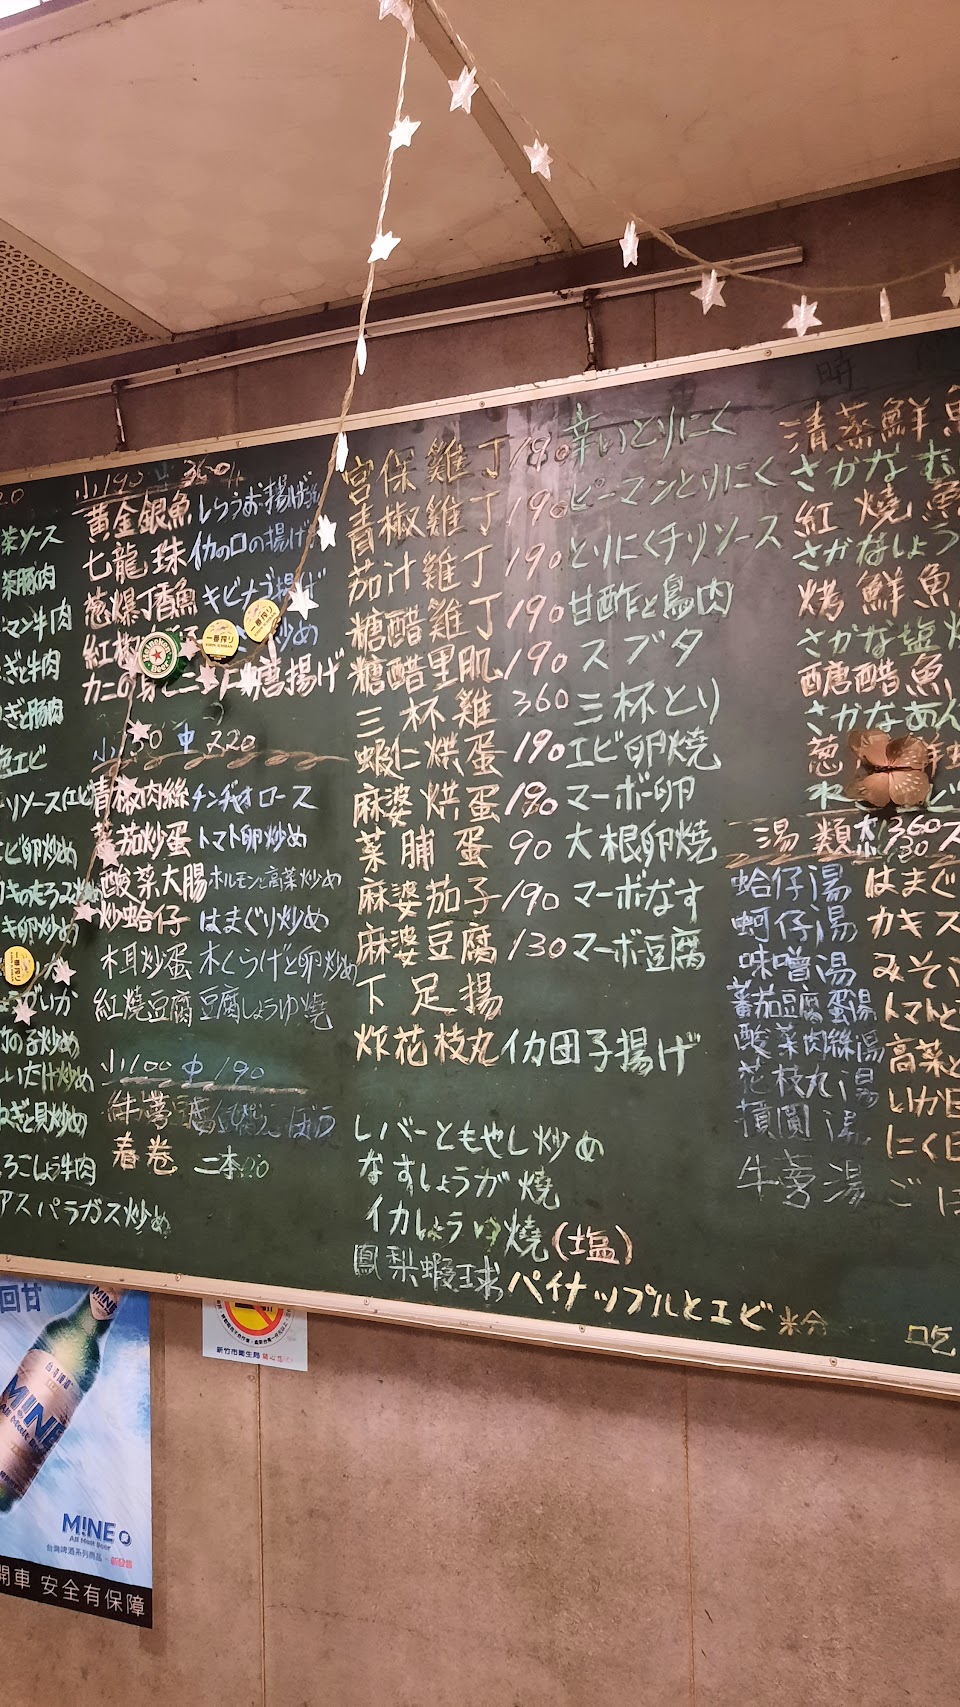 菜ソース
菜豚肉
マン牛肉
ぎと牛肉
エビ
リソース(エビ
ビ卵炒め
キ卵炒め
いか
の子炒め
いたけ炒め
ねぎと貝炒め
ろこしょう牛肉
アスパラガス炒め
小190 中 360
黃金銀魚 しらうお揚げ
七龍珠 イカの口の揚げ
葱爆丁香魚 キビナゴ揚げ
紅椒 炒め
カニの 揚げ
小130 中 220
青椒肉絲 チンヂャオロース
蕃茄炒蛋 トマト卵炒め
酸菜大腸 ホルモンと高菜炒め
炒蛤仔 はまぐり炒め
木耳炒蛋 木くらげと卵炒め
紅燒豆腐 豆腐しょうゆ燒
小100 中 190
春卷 二本
宮保雞丁 190 辛いとりにく
青椒雞丁 190 ピーマンとりにく
茄汁雞丁 190 とりにくチリソース
糖醋雞丁 190 甘酢と鳥肉
糖醋里肌 190 スブタ
三杯雞 360 三杯とり
蝦仁烘蛋 190 エビ卵焼
麻婆烘蛋 190 マーボー卵
菜脯蛋 90 大根卵焼
麻婆茄子 190 マーボなす
麻婆豆腐 130 マーボ豆腐
下足揚
炸花枝丸 イカ団子揚げ
レバーともやし炒め
なすしょうが燒
イカしょうゆ燒(塩)
鳳梨蝦球 パイナップルとエビ
清蒸鮮魚
さかなむ
紅燒魚
さかなしょう
烤鮮魚
さかな塩
醣醋魚
さかなあん
葱
湯類 大360 小130 ス
蛤仔湯 はまぐ
蚵仔湯 カキス
味噌湯 みそ
蕃茄豆腐蛋湯 トマトと
酸菜肉絲湯 高菜と
花枝丸湯 いか団
摃圓湯 にく団
牛蒡湯 ごぼ
回甘
MINE
台灣啤酒
MINE
All Malt Beer
MINE
All Malt Beer
台灣啤酒系列商品・新發售
開車 安全有保障
新竹市衛生局 關心您
一番搾り
一番搾り
一番搾り